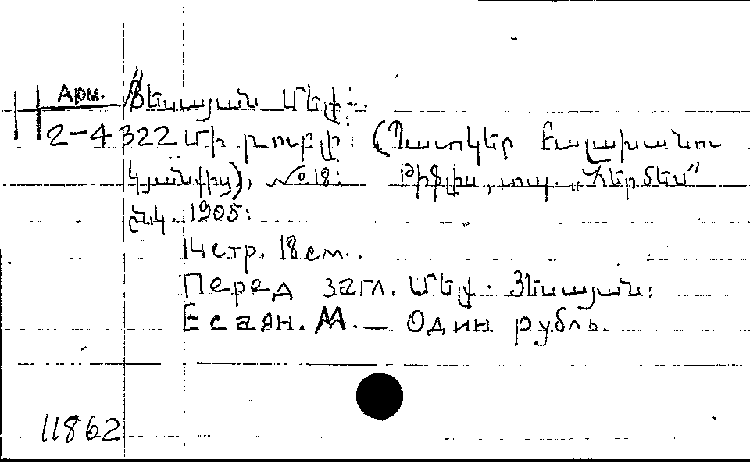 Арм.
Յեսայան Մելք.
2-4322 Մի րուբլի: (Պատկեր Բալախանու
կյանքից), № 18: Թիֆլիս, տպ. „Հերմես"
ընկ. 1905:
14 стр. 18 см.
Перед загл. Մելք. Յեսայան:
Есаян. М. — Один рубль.
11862